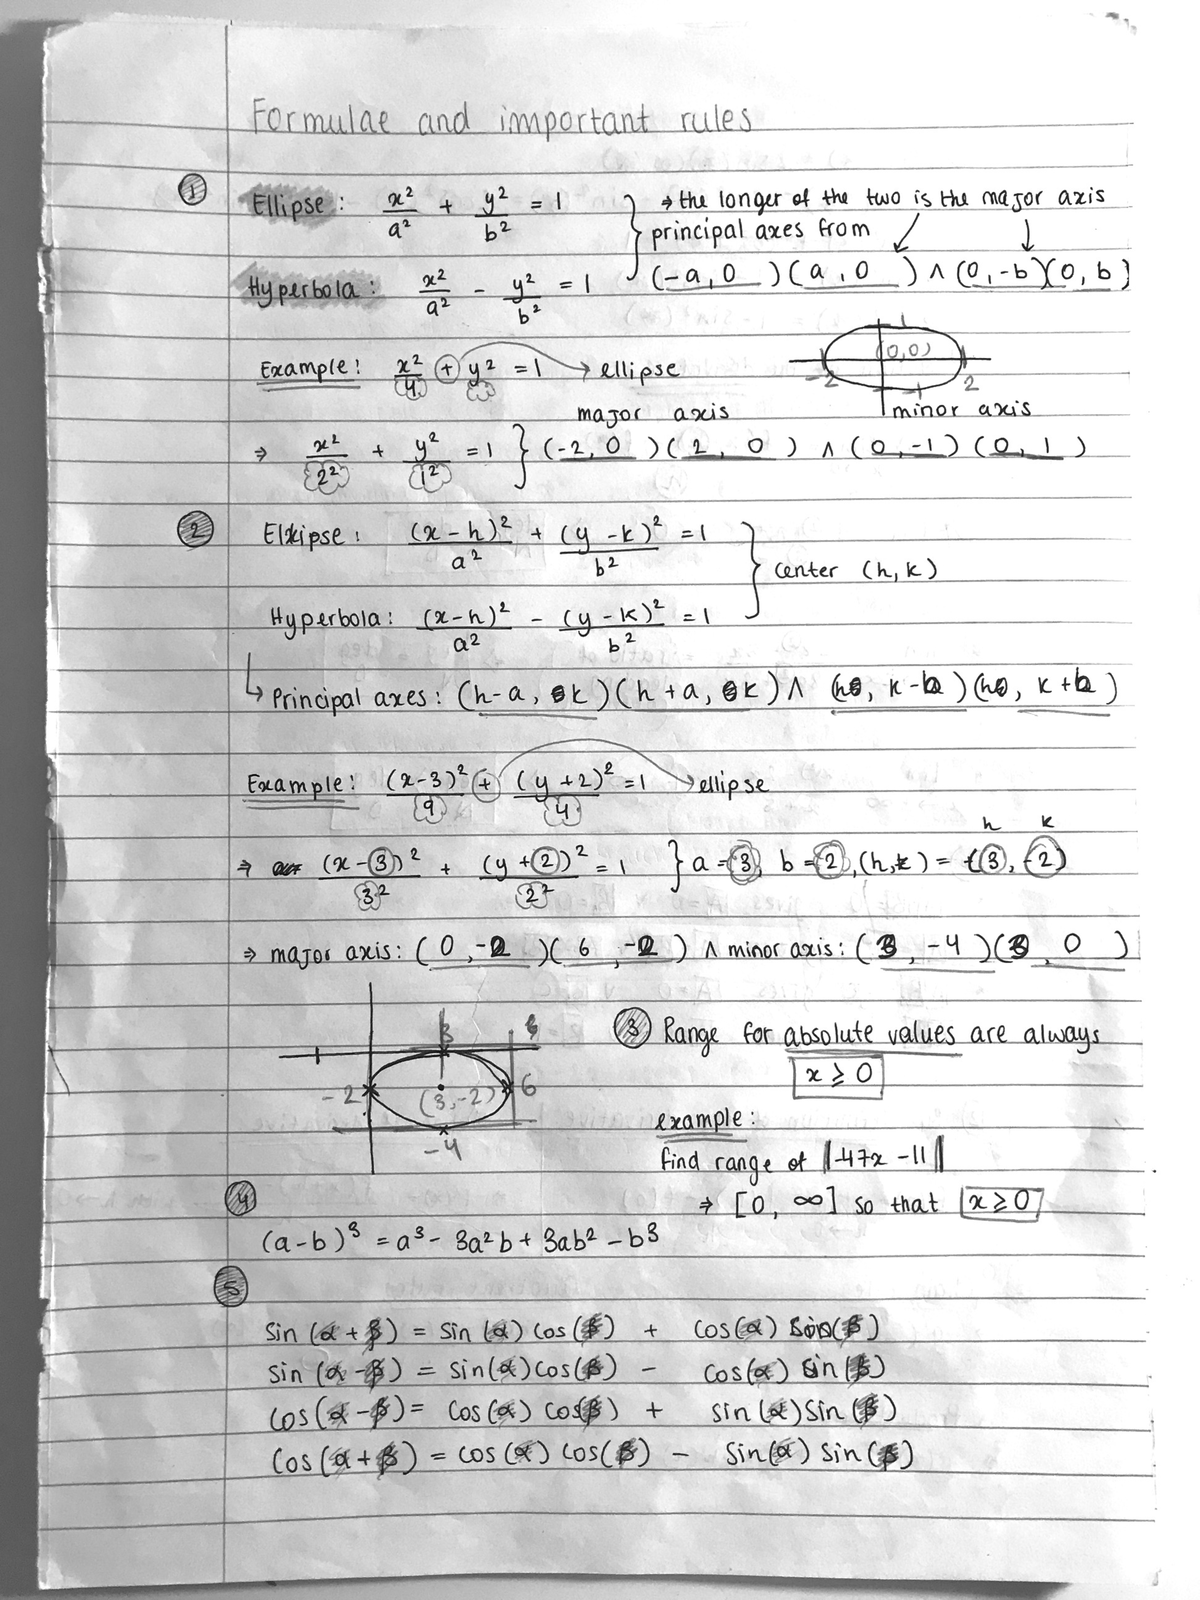 Formulae and important rules
① Ellipse: x²/a² + y²/b² = 1 } ⇒ the longer of the two is the major axis
principal axes from
Hyperbola: x²/a² - y²/b² = 1 (-a, 0)(a, 0) ∧ (0, -b)(0, b)
Example: x²/4 + y² = 1 → ellipse
(0,0)
1
-2 2
-1
major axis minor axis
⇒ x²/2² + y²/1² = 1 } (-2, 0)(2, 0) ∧ (0, -1)(0, 1)
② Ellipse: (x-h)²/a² + (y-k)²/b² = 1
} center (h, k)
Hyperbola: (x-h)²/a² - (y-k)²/b² = 1
↳ Principal axes: (h-a, k)(h+a, k) ∧ (h, k-b)(h, k+b)
Example: (x-3)²/9 + (y+2)²/4 = 1 → ellipse
h k
⇒ (x-3)²/3² + (y+2)²/2² = 1 } a = 3, b = 2, (h,k) = (3, -2)
⇒ major axis: (0, -2)(6, -2) ∧ minor axis: (3, -4)(3, 0)
3
-2 (3,-2) 6
-4
③ Range for absolute values are always
x ≥ 0
example:
find range of |-47x -11|
⇒ [0, ∞] so that x ≥ 0
④
(a-b)³ = a³ - 3a²b + 3ab² - b³
⑤
Sin(α+β) = Sin(α) Cos(β) + Cos(α) Sin(β)
Sin(α-β) = Sin(α) Cos(β) - Cos(α) Sin(β)
Cos(α-β) = Cos(α) Cos(β) + Sin(α) Sin(β)
Cos(α+β) = Cos(α) Cos(β) - Sin(α) Sin(β)